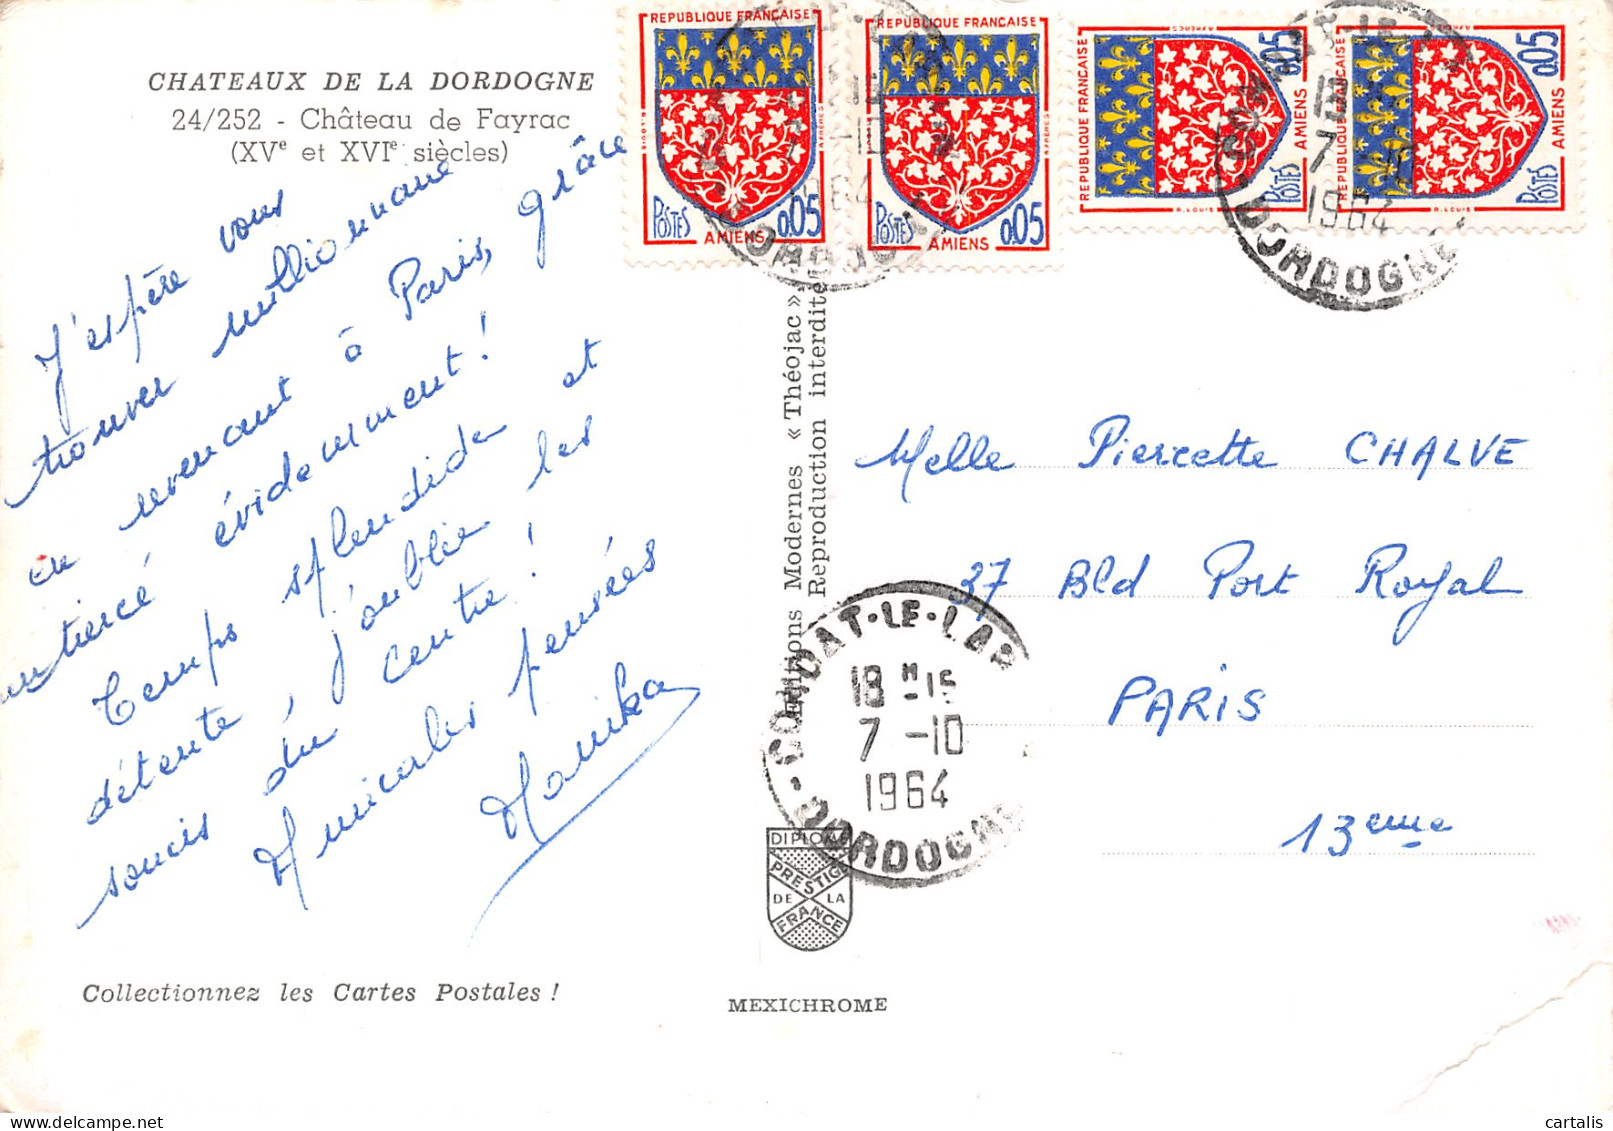 CHATEAUX DE LA DORDOGNE
24/252 - Château de Fayrac
(XVe et XVIe siècles)
J'espère vous
trouver millionnaire
en revenant à Paris, grâce
au tiercé évidemment !
Temps splendide et
détente, j'oublie les
soucis du centre !
Amicales pensées
Monika
Collectionnez les Cartes Postales !
Editions Modernes « Théojac »
Reproduction interdite
DIPLOME
PRESTIGE
DE LA
FRANCE
MEXICHROME
REPUBLIQUE FRANÇAISE
POSTES
0.05
AMIENS
REPUBLIQUE FRANÇAISE
POSTES
0.05
AMIENS
REPUBLIQUE FRANÇAISE
POSTES
0.05
AMIENS
R. LOUIS
REPUBLIQUE FRANÇAISE
POSTES
0.05
AMIENS
R. LOUIS
18
7 -10
1964
DORDOGNE
CONDAT-LE-LAR
18 H -15
7 -10
1964
DORDOGNE
Melle Pierrette CHALVE
37 Bld Port Royal
PARIS
13eme
cartalis
www.delcampe.net